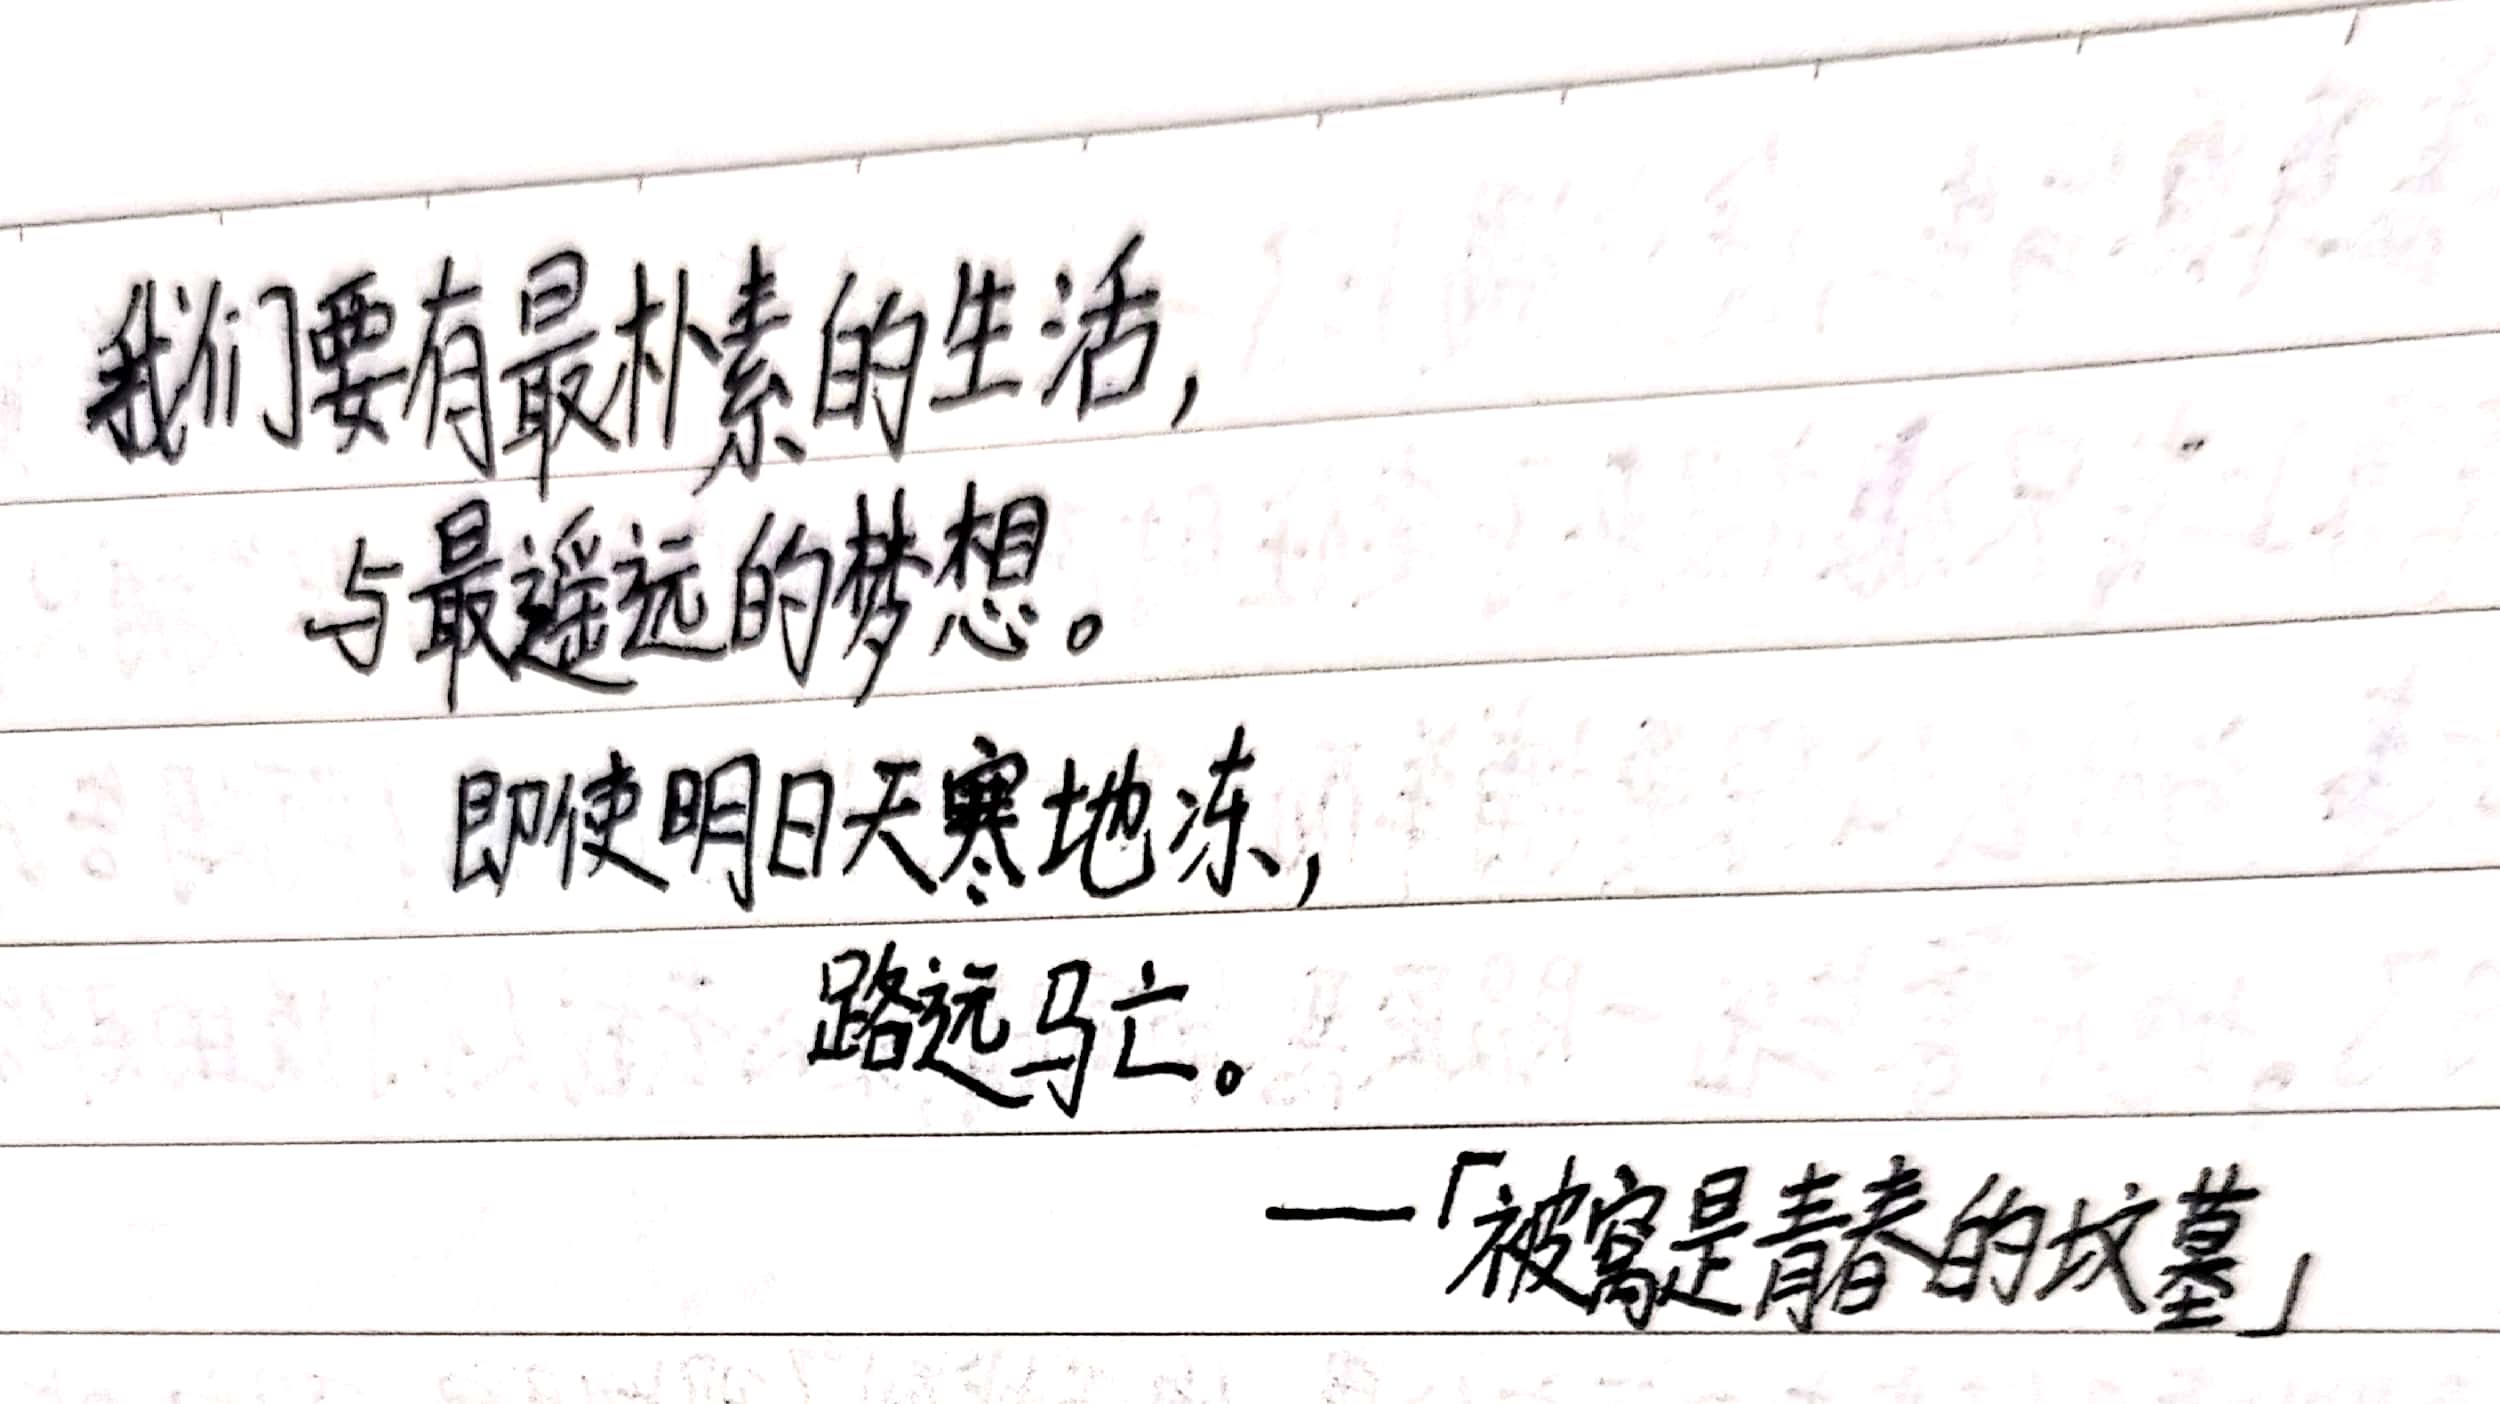 我们要有最朴素的生活，
与最遥远的梦想。
即使明日天寒地冻，
路远马亡。
—「被窝是青春的坟墓」